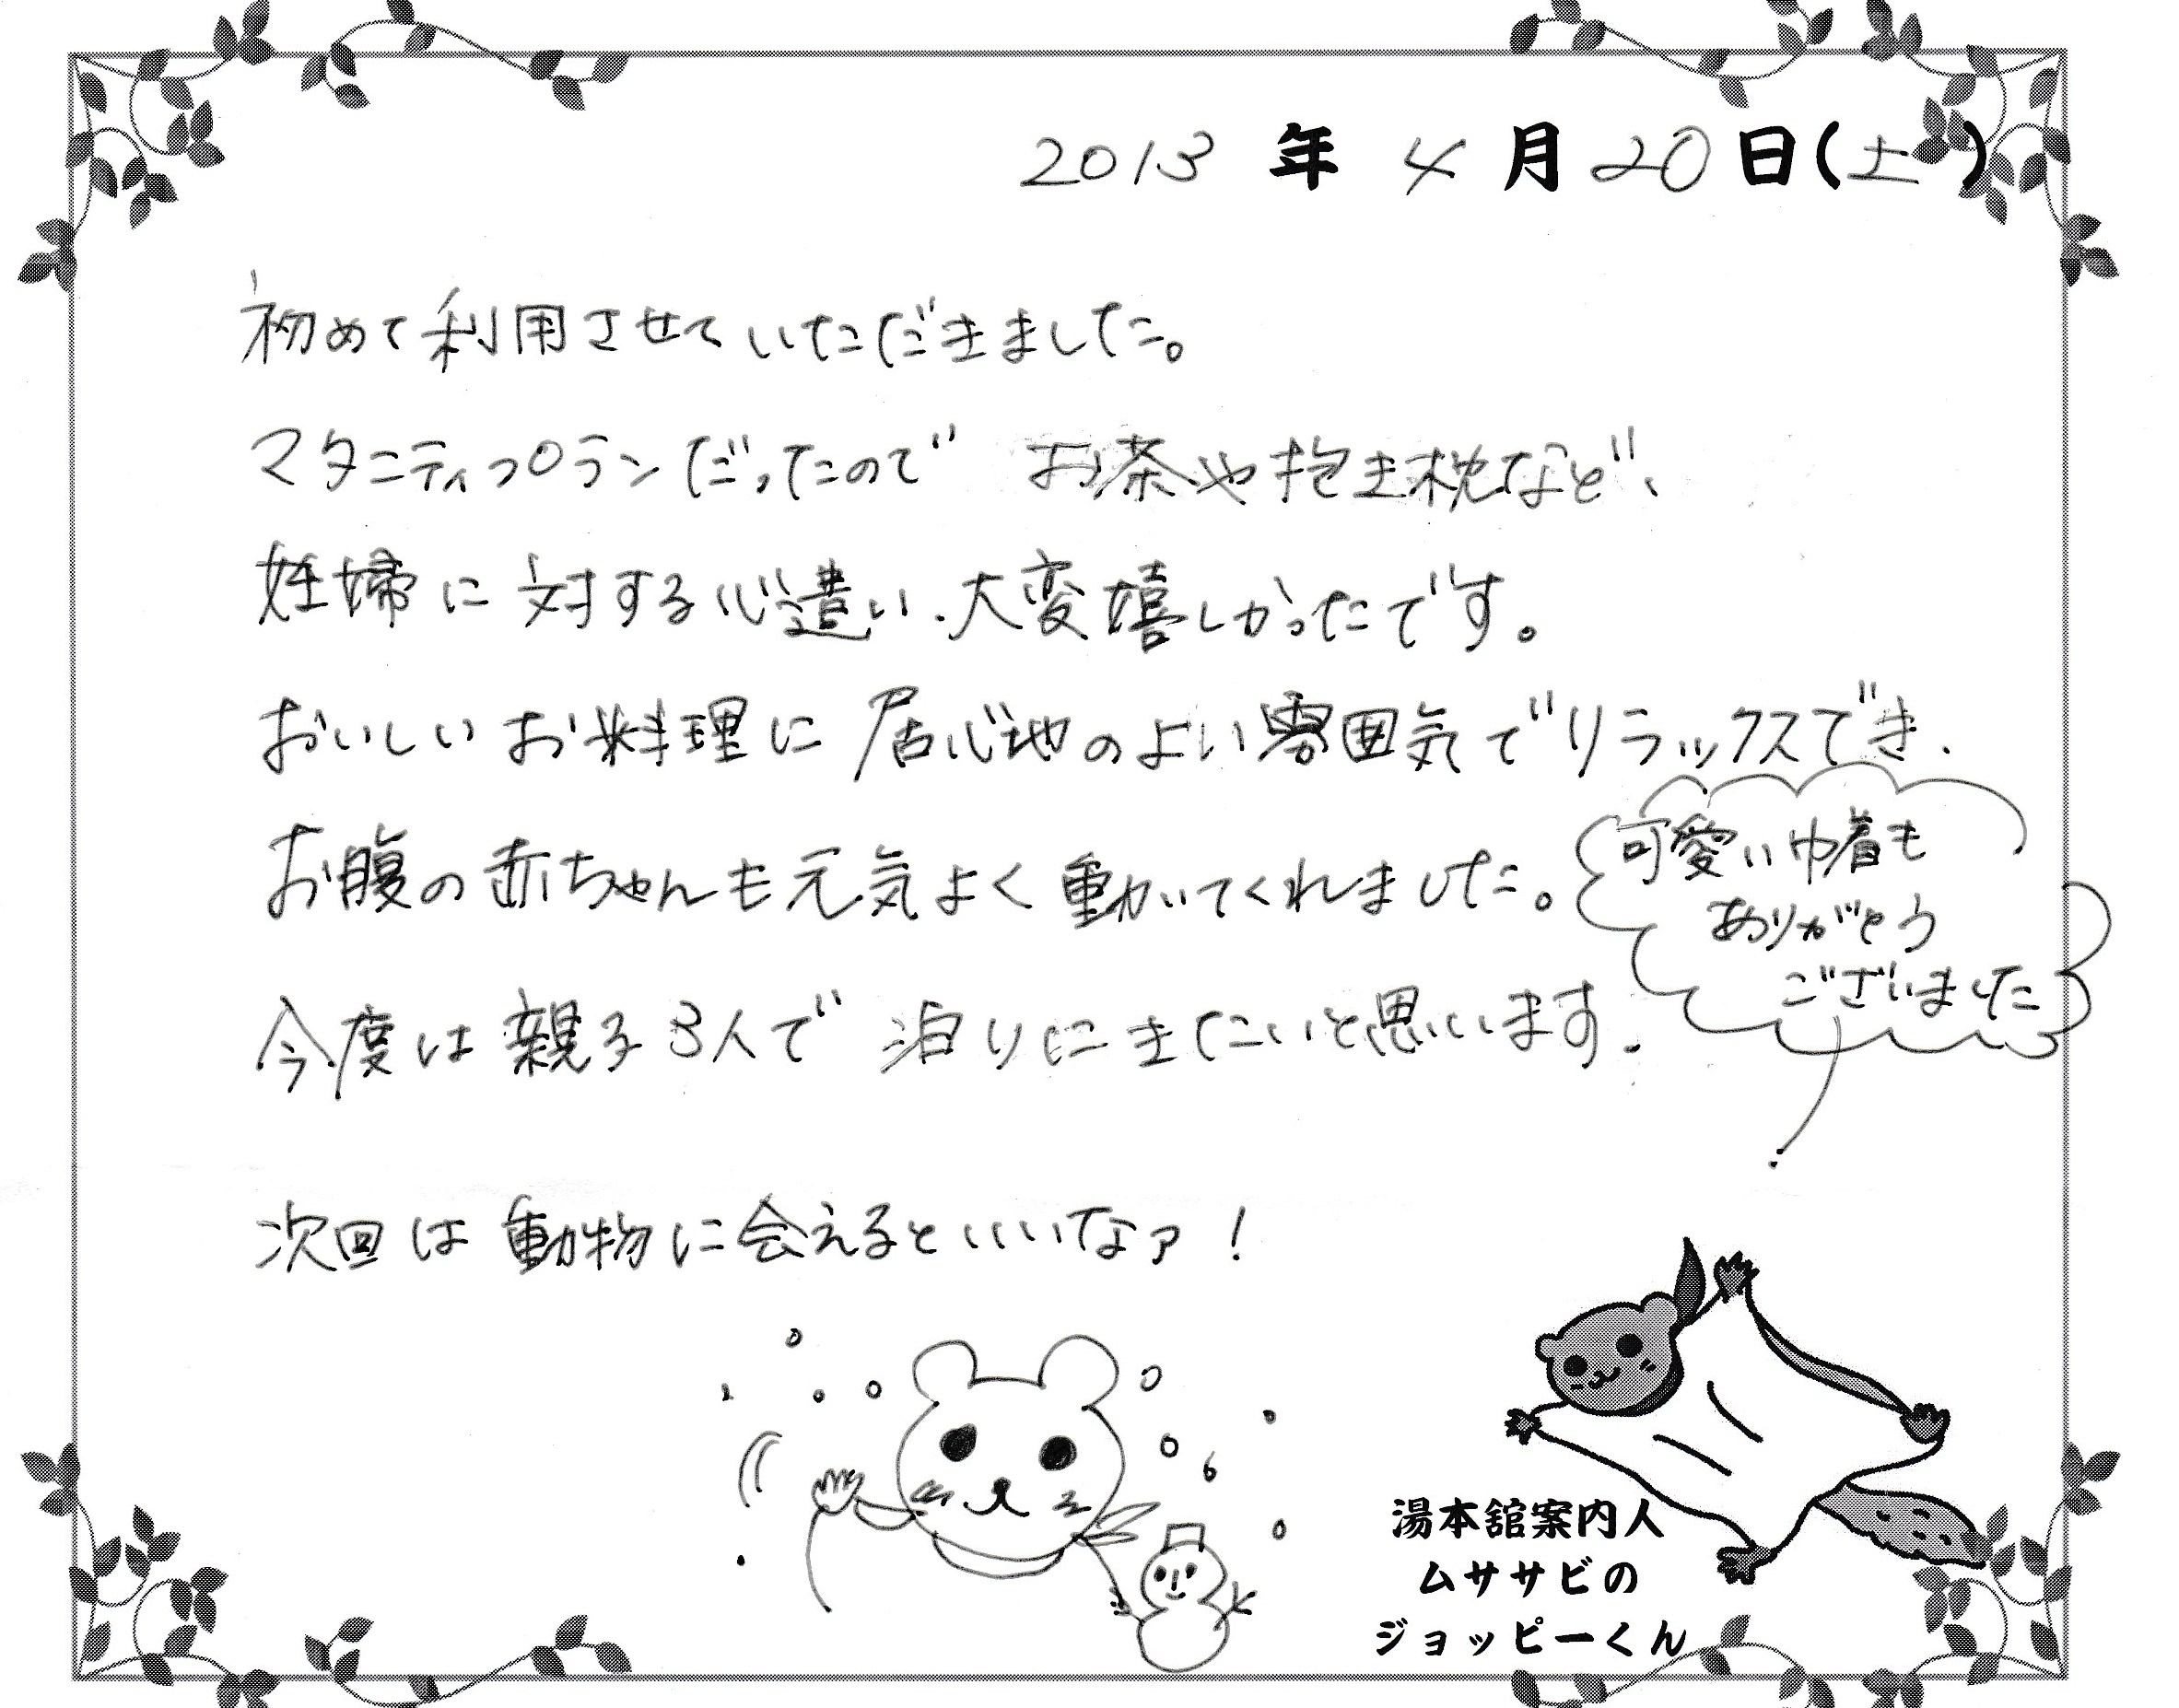 2013年4月20日(土)
初めて利用させていただきました。
マタニティプランだったので お茶や抱き枕など、
妊婦に対する心遣い、大変嬉しかったです。
おいしいお料理に居心地のよい雰囲気でリラックスでき、
お腹の赤ちゃんも元気よく動いてくれました。
可愛い巾着も
ありがとう
ございました
今度は親子3人で 泊りにきたいと思います。
次回は動物に会えるといいなァ!
湯本舘案内人
ムササビの
ジョッピーくん